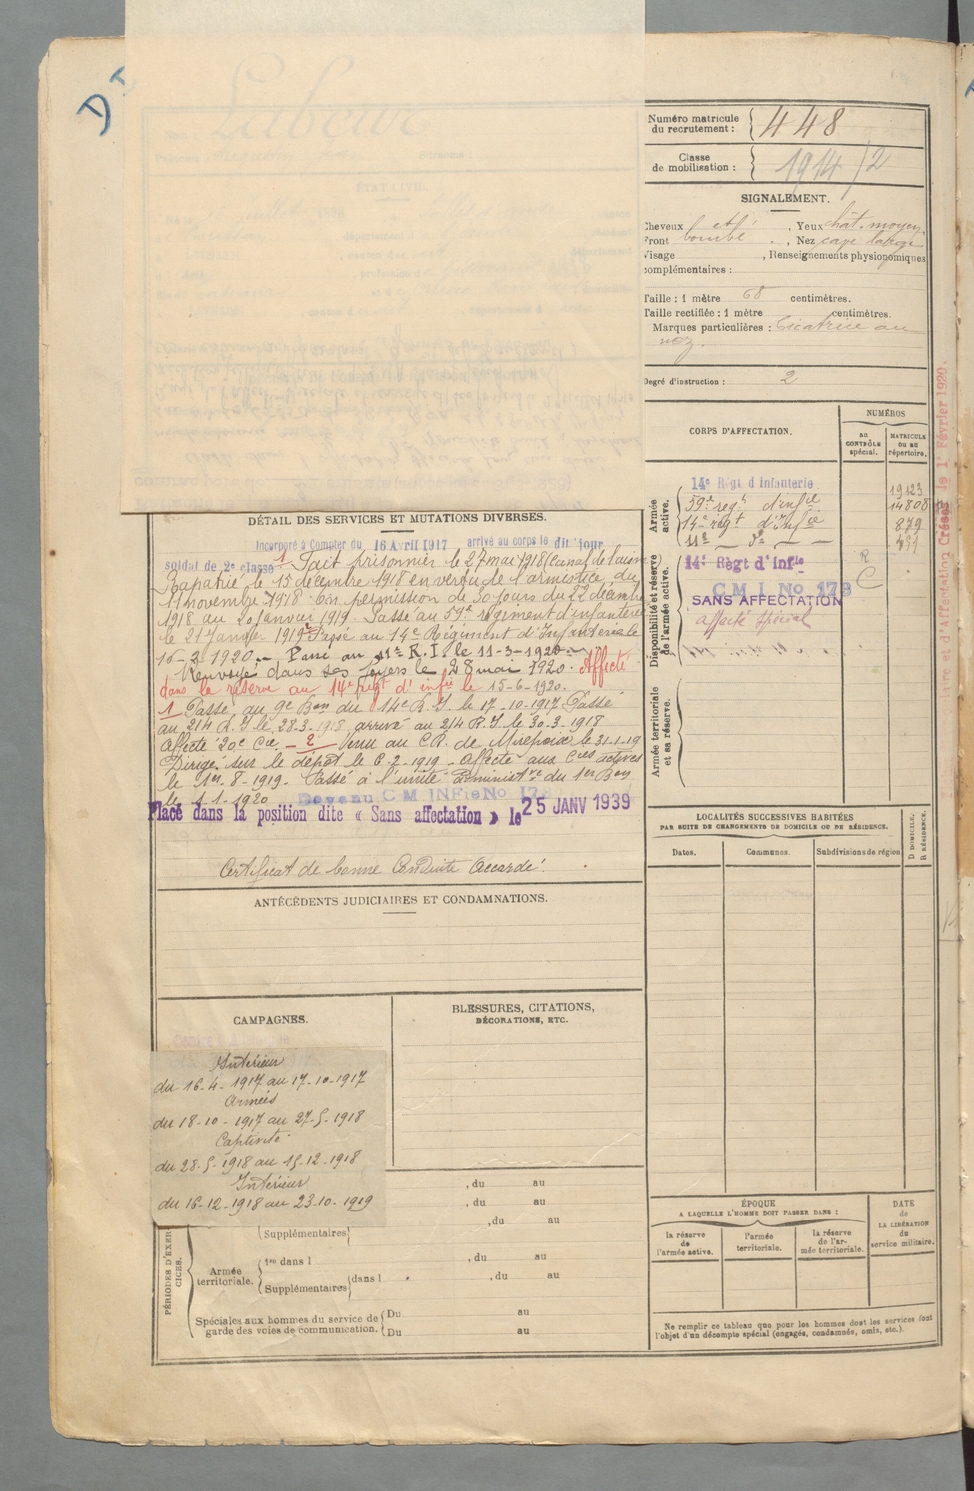 Labeur
Numéro matricule
du recrutement :
448
Classe
de mobilisation :
1914/2
SIGNALEMENT.
Cheveux , Yeux chât. moyen
Front bombé , Nez cave large
Visage , Renseignements physionomiques
complémentaires :
Taille : 1 mètre 68 centimètres.
Taille rectifiée : 1 mètre centimètres.
Marques particulières : Cicatrice au
nez.
Degré d'instruction : 2
CORPS D'AFFECTATION.
NUMÉROS
au
CONTRÔLE
spécial.
MATRICULE
ou au
répertoire.
Armée
active.
14e Régt d'Infanterie 19123
59e regt d'infie 14808
14e regt d'Infie 879
11e — do —
Disponibilité et réserve
de l'armée active.
14e Régt d'Infie R
C M I No 178 C
SANS AFFECTATION
affecté spécial
Armée territoriale
et sa réserve
DÉTAIL DES SERVICES ET MUTATIONS DIVERSES.
Incorporé à Compter du 16 Avril 1917 arrivé au corps le dit jour
soldat de 2e classe 1 Fait prisonnier le 27 mai 1918 (Canal de l'aisne
Rapatrié le 15 décembre 1918 en vertu de l'armistice du
11 novembre 1918. En permission de 30 jours du 22 décembre
1918 au 20 janvier 1919. Passé au 59e régiment d'infanterie
le 21 Janvier 1919 2 Passé au 14e Régiment d'Infanterie le
16-2 1920. — Passé au 11e R.I. le 11-3-1920 —
Renvoyé dans ses foyers le 28 mai 1920. Affecté
dans la réserve au 14e regt d'infie le 15-6-1920.
1 Passé au 9e Bon du 14e R.I. le 17-10-1917 Passé
au 214 R.I le 28-3-1918 arrivé au 214 R.I le 30.3-1918
Affecté 20e Cie — 2 Venu au C.R. de Mirepoix le 31-1-19
Dirigé sur le dépôt le 6-2-1919 - Affecté aux Cies actives
le 1er-8-1919. Passé à l'unité administve du 1er Bon
le 1-1-1920 Devenu C M INFie No 178
Placé dans la position dite « Sans affectation » le 25 JANV 1939
Certificat de bonne Conduite Accordé.
ANTÉCÉDENTS JUDICIAIRES ET CONDAMNATIONS.
LOCALITÉS SUCCESSIVES HABITÉES
PAR SUITE DE CHANGEMENTS DE DOMICILE OU DE RÉSIDENCE.
Dates.
Communes.
Subdivisions de région
D DOMICILE.
R RÉSIDENCE.
CAMPAGNES.
Intérieur
du 16-4-1917 au 17-10-1917
Armées
du 18-10-1917 au 27-5-1918
Captivité
du 28-5-1918 au 15-12-1918
Intérieur
du 16-12-1918 au 23-10-1919
BLESSURES, CITATIONS,
DÉCORATIONS, ETC.
PÉRIODES D'EXERCICES.
, du au
, du au
Supplémentaires , du au
Armée
territoriale.
1re dans l , du au
Supplémentaires dans l , du au
Spéciales aux hommes du service de
garde des voies de communication.
Du au
Du au
ÉPOQUE
A LAQUELLE L'HOMME DOIT PASSER DANS :
la réserve
de
l'armée active.
l'armée
territoriale.
la réserve
de l'ar-
mée territoriale.
DATE
de
LA LIBÉRATION
du
service militaire.
Ne remplir ce tableau que pour les hommes dont les services font
l'objet d'un décompte spécial (engagés, condamnés, omis, etc.).